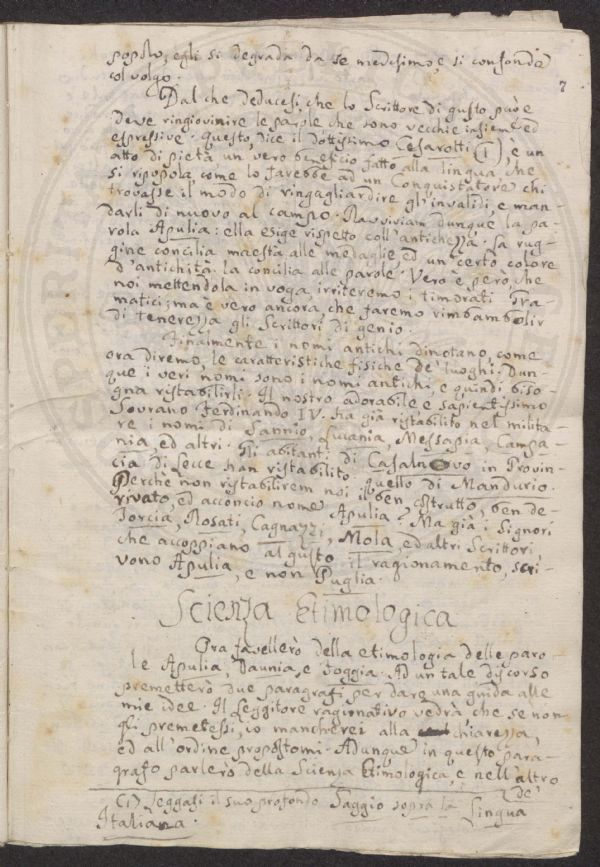 popolo, egli si degrada da se medesimo, e si confonde
col volgo.
7
Dal che deducesi, che lo Scrittore di gusto può e
deve ringiovinire le parole che sono vecchie insieme ed
espressive. Questo, dice il dottissimo Cesarotti (1), è un
atto di pietà, un vero beneficio fatto alla lingua, che
si ripopola, come lo farebbe ad un Conquistatore chi
trovasse il modo di ringagliardire gl'invalidi, e man-
darli di nuovo al campo. Ravviviam dunque la pa-
rola Apulia: ella esige rispetto coll'antichezza. La rug-
gine concilia maestà alle medaglie ed un certo colore
d'antichità la concilia alle parole. Vero è però, che
noi mettendola in voga, irriteremo i timorati Gra-
matici; ma è vero ancora, che faremo rimbambolir
di tenerezza gli Scrittori di genio.
Finalmente i nomi antichi dinotano, come
ora diremo, le caratteristiche fisiche de' luoghi. Dun-
que i veri nomi sono i nomi antichi, e quindi biso-
gna ristabilirli. Il nostro adorabile e sapientissimo
Sovrano Ferdinando IV. ha già ristabilito nel milita-
re i nomi di Sannio, Lucania, Messapia, Campa-
nia, ed altri. Gli abitanti di Casalnovo in Provin-
cia di Lecce han ristabilito quello di Mandurio.
Perchè non ristabilirem noi il ben costrutto, ben de-
rivato, ed acconcio nome Apulia? Ma già i Signori
Torcia, Rosati, Cagnazzi, Mola, ed altri Scrittori,
che accoppiano al gusto il ragionamento, scri-
vono Apulia, e non Puglia.
Scienza Etimologica
Ora favellerò della etimologia delle paro-
le Apulia, Daunia, e Foggia. Ad un tale discorso
premetterò due paragrafi per dare una guida alle
mie idee. Il Leggitore ragionativo vedrà che se non
gli premetessi, io mancherei alla chiarezza,
ed all'ordine propostomi. Adunque in questo para-
grafo parlerò della Scienza Etimologica, e nell'altro
de'
(1) Leggasi il suo profondo Saggio sopra la Lingua
Italiana.